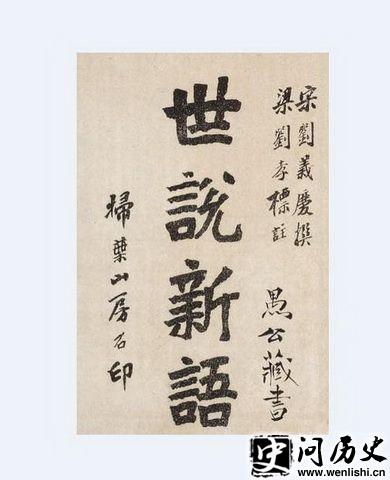 宋劉義慶撰
梁劉孝標註
愚公藏書
世說新語
掃葉山房石印
史问历史
www.wenlishi.cn